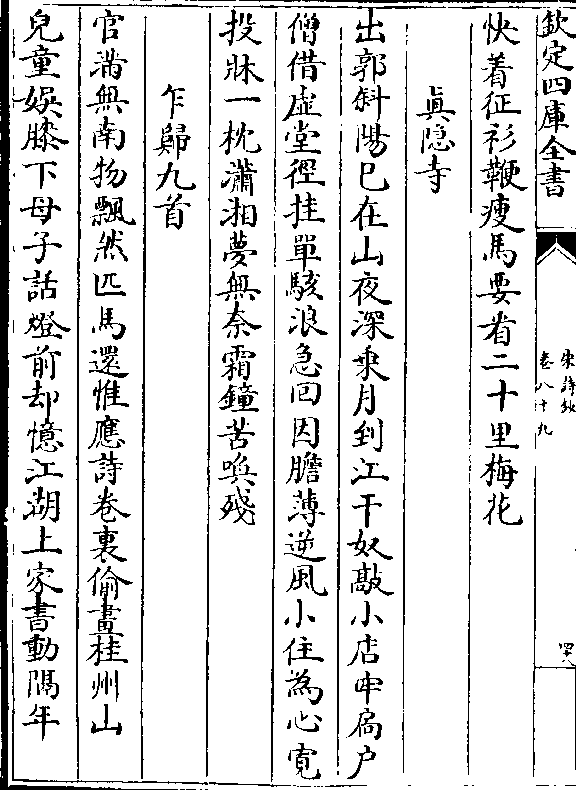 欽定四庫全書
宋詩鈔
卷八十九
四八
快着征衫鞭瘦馬要看二十里梅花
真隐寺
出郭斜陽已在山夜深乗月到江干奴敲小店牢扄户
僧借虚堂徑挂單駭浪急回因膽薄逆風小住為心寛
投牀一枕瀟湘夢無奈霜鐘苦喚殘
乍歸九首
官滿無南物飄然匹馬還惟應詩卷裏偷畫桂州山
兒童娱膝下母子話燈前却憶江湖上家書動隔年